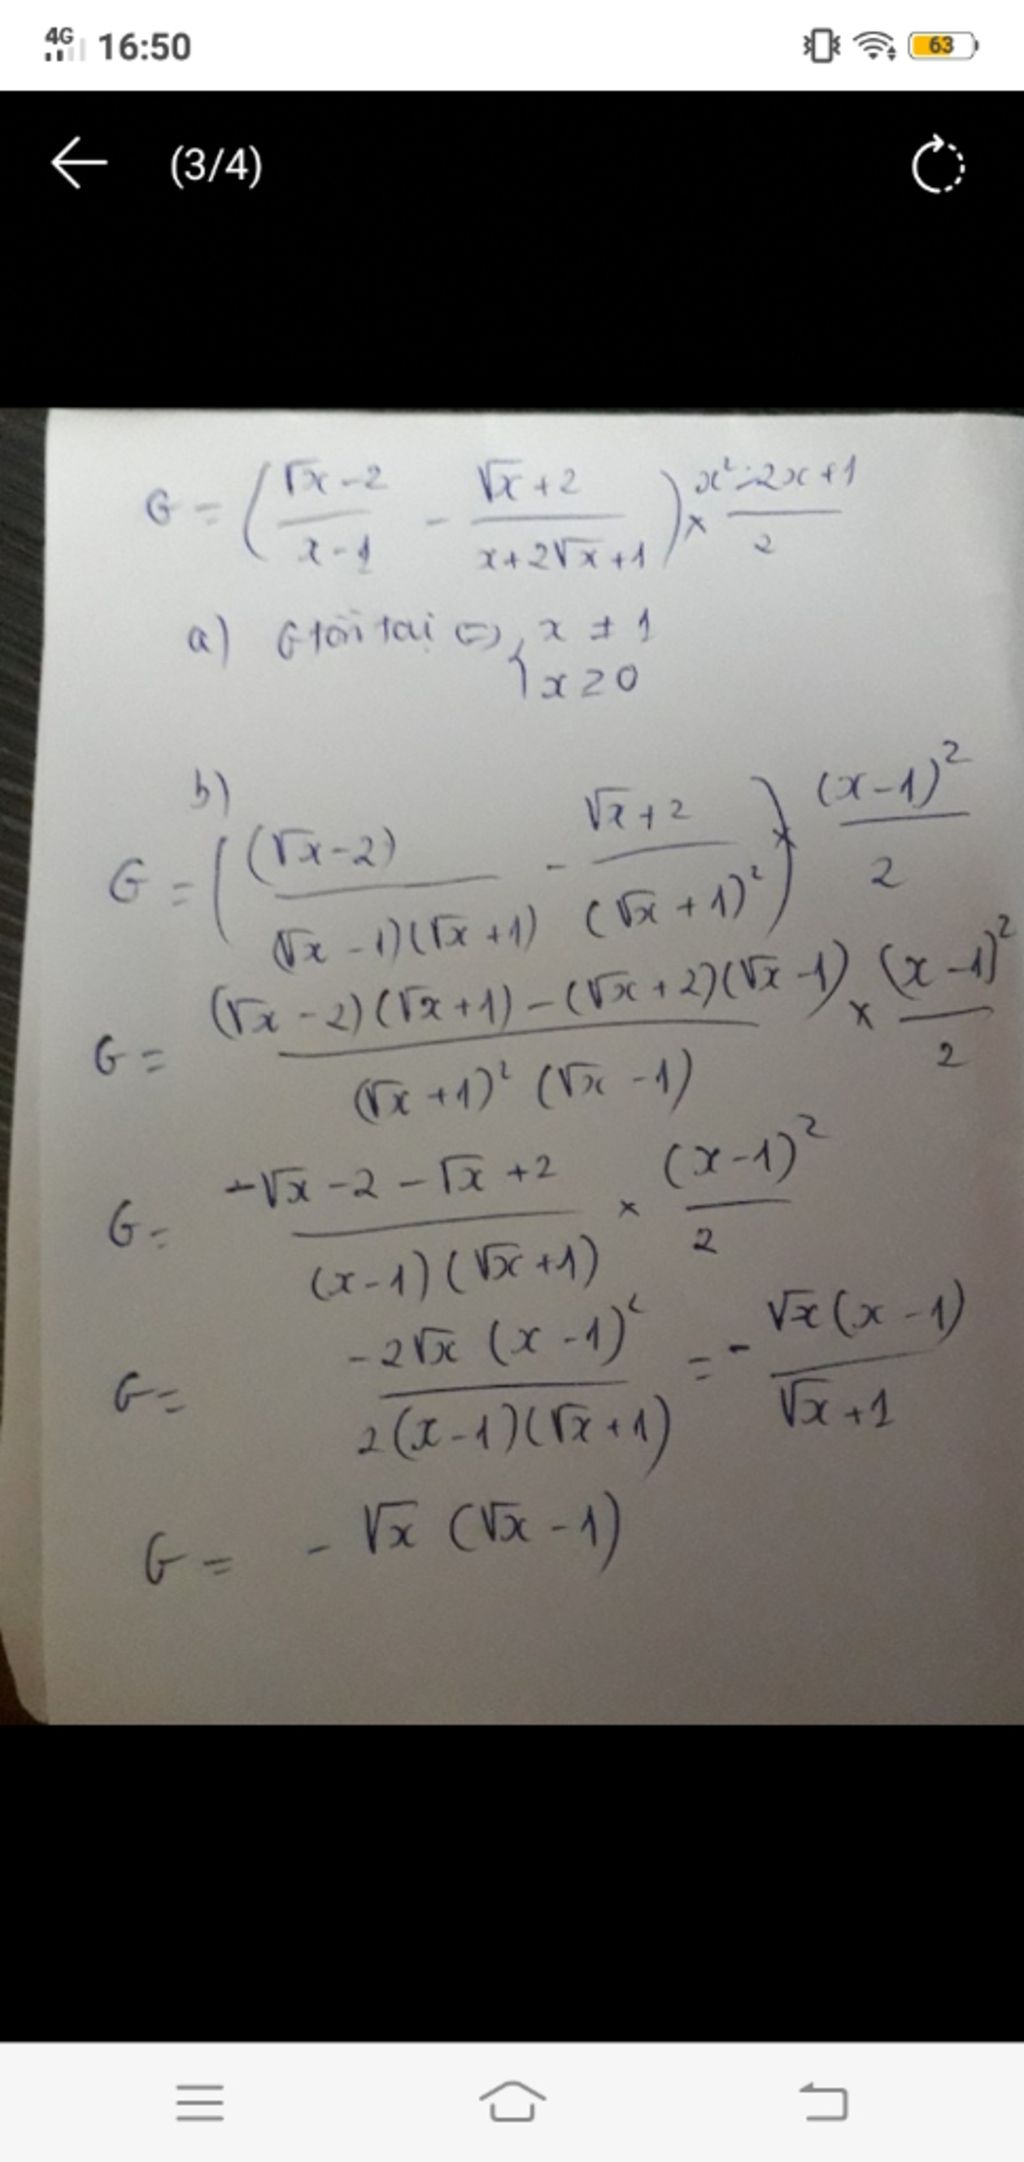 4G 16:50 63
(3/4)
G = ( (√x - 2)/(x - 1) - (√x + 2)/(x + 2√x + 1) ) × (x² - 2x + 1)/2
a) G tồn tại ⇔ { x ≠ 1
x ≥ 0
b)
G = ( (√x - 2)/((√x - 1)(√x + 1)) - (√x + 2)/((√x + 1)²) ) × (x - 1)²/2
G = ((√x - 2)(√x + 1) - (√x + 2)(√x - 1))/((√x + 1)² (√x - 1)) × (x - 1)²/2
G = (-√x - 2 - √x + 2)/((x - 1)(√x + 1)) × (x - 1)²/2
G = (-2√x (x - 1)²)/(2(x - 1)(√x + 1)) = - (√x (x - 1))/(√x + 1)
G = - √x (√x - 1)